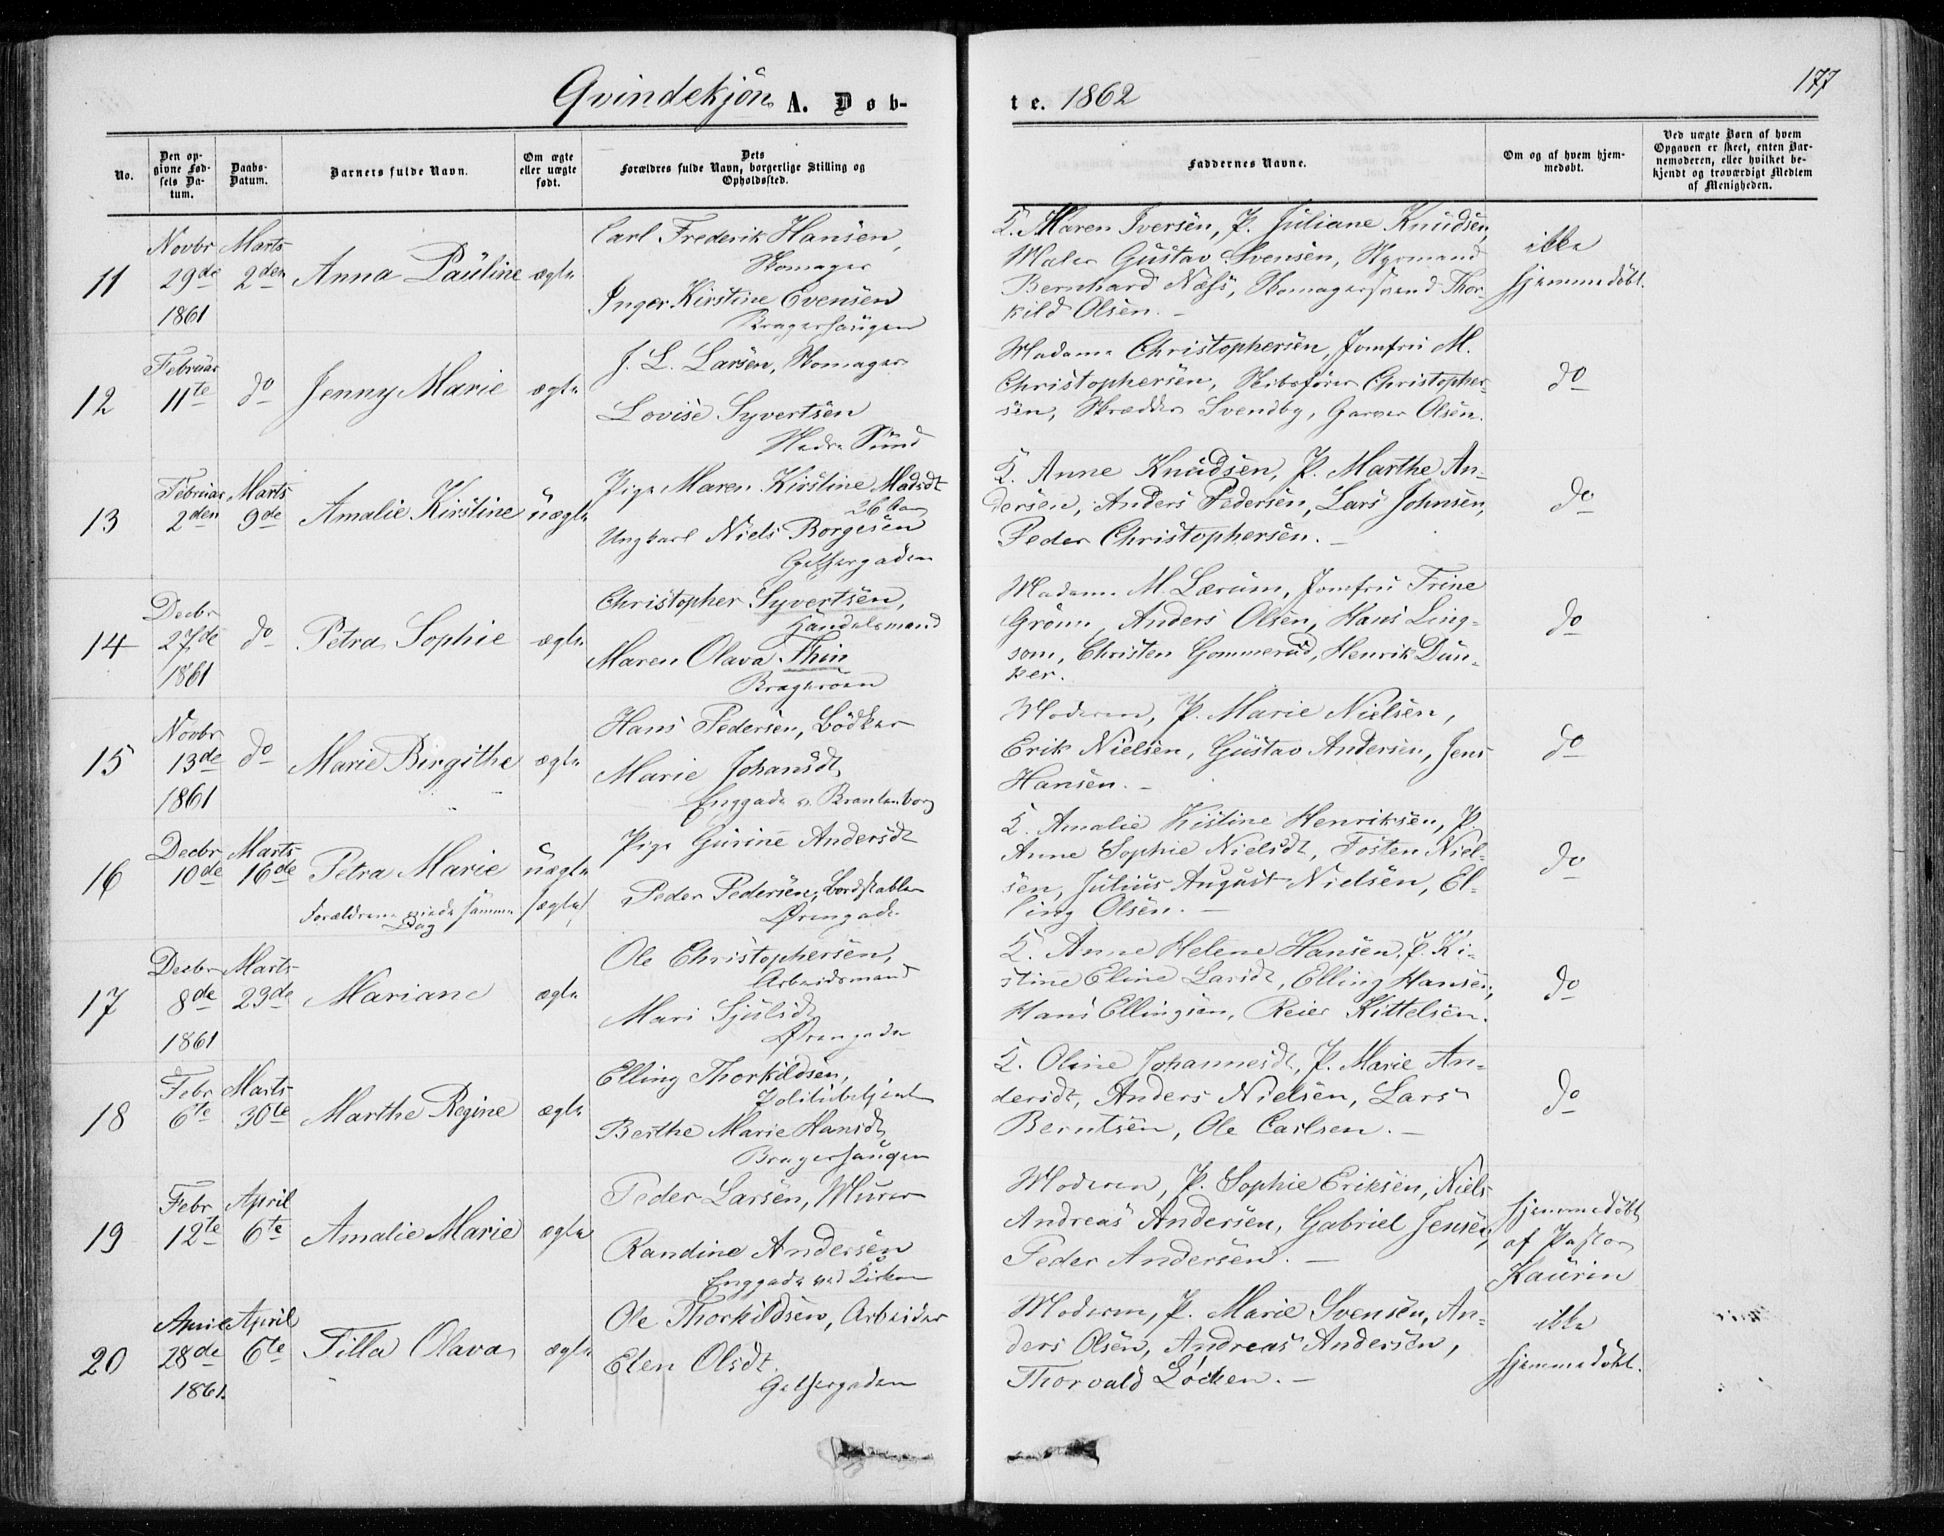 Qvindekjøn A. Døb-
te. 1862
177
No.
Den op-
givne Fød-
sels Da-
tum.
Daabs-
Datum.
Barnets fulde Navn.
Om ægte
eller uægte
født.
Dets
Forældres fulde Navn, borgerlige Stilling og
Opholdssted.
Faddernes Navne.
Om og af hvem hjem-
medøbt.
Ved uægte Børn af hvem
Opgaven er skeet, enten Bar-
nemoderen, eller hvilket be-
kjendt og troværdigt Medlem
af Menigheden.
11
Novbr
29de
1861
Marts
2den
Anna Pauline
ægte
Carl Frederik Hansen,
Skomager
Inger Kirstine Evensen
Bragerhaugen
K. Maren Iversen, P. Juliane Knudsen,
Maler Gustav Svensen, Styrmand
Bernhard Næss, Skomagersvend Thor-
kild Olsen. —
ikke
hjemmedøbt.
12
Februar
11te
do
Jenny Marie
ægte
J. L. Larsen, Skomager
Lovise Syvertsen
Nedre Sund
Madame Christophersen, Jomfru M.
Christophersen, Skibsfører Christopher-
sen, Skrædder Svendby, Garver Olsen.
do
13
Februar
2den
Marts
9de
Amalie Kirstine
uægte
Pige Maren Kirstine Madsdt
Ungkarl Niels Borgesen
Gethergaden
K. Anne Knudsen, P. Marthe An-
dersen, Anders Pedersen, Lars Johnsen,
Peder Christophersen. —
do
14
Decbr
27de
1861
do
Petra Sophie
ægte
Christopher Syvertsen,
Handelsmand
Maren Olava Thin
Bragerøen
Madame M. Lærum, Jomfru Trine
Grønn, Anders Olsen, Hans Ling-
som, Christen Gommerud, Henrik Dun-
ker.
do
15
Novbr
13de
1861
do
Marie Birgithe
ægte
Hans Pedersen, Bødker
Marie Johansdt,
Enggade v. Brantenborg
Moderen, P. Marie Nielsen,
Erik Nielsen, Gustav Andersen, Jens
Hansen. —
do
16
Decbr
10de
Marts
16de
Petra Marie
Forældrene viede samme
Dag
uægte
(ægte)
Pige Gurine Andersdt
Peder Pedersen, Bordstabler
Ørengade
K. Amalie Kistine Henriksen, P.
Anne Sophie Nielsdt, Tosten Niel-
sen, Julius August Nielsen, El-
ling Olsen. —
do
17
Decbr
8de
1861
Marts
23de
Mariane
ægte
Ole Christophersen,
Arbeidsmand
Mari Sjulsdt,
Ørengaden
K. Anne Helene Hansen, P. Ki-
stine Eline Larsdt, Elling Hansen,
Hans Ellingsen, Reier Kittelsen.
do
18
Febr
6te
Marts
30te
Marthe Regine
ægte
Elling Thorkildsen,
Politibetjent
Berthe Marie Hansdt,
Bragerhaugen
K. Oline Johannesdt, P. Marie An-
dersdt, Anders Nielsen, Lars
Berntsen, Ole Carlsen. —
do
19
Febr
12te
April
6te
Amalie Marie
ægte
Peder Larsen, Murer
Randine Andersen
Enggade ved Kirken
Moderen, P. Sophie Eriksen, Niels
Andreas Andersen, Gabriel Jensen,
Peder Andersen. —
hjemmedøbt
af Pastor
Kaurin
20
April
28de
1861.
April
6te
Tilla Olava
ægte
Ole Thorkildsen, Arbeider
Elen Olsdt.
Gethergaden
Moderen, P. Marie Svensen, An-
ders Olsen, Andreas Andersen,
Thorvald Løcken. —
ikke
hjemmedøbt.